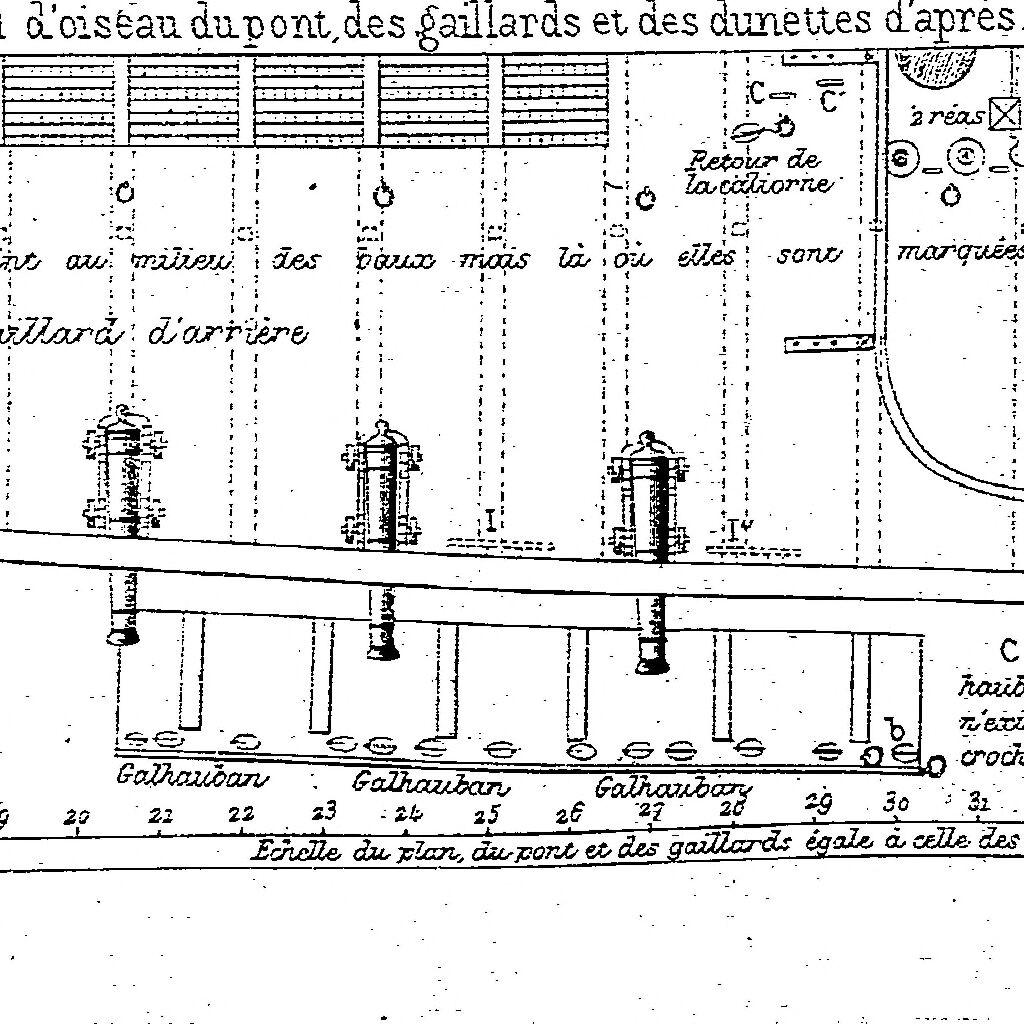 d'oiseau du pont, des gaillards et des dunettes d'après
C C'
2 réas
Retour de
la caliorne
nt au milieu des baux mais là où elles sont marquées
aillard d'arrière
I I'
C
haub
n'exi
b
croch
Galhauban Galhauban Galhauban
9 20 21 22 23 24 25 26 27 28 29 30 31
Echelle du plan, du pont et des gaillards égale à celle des